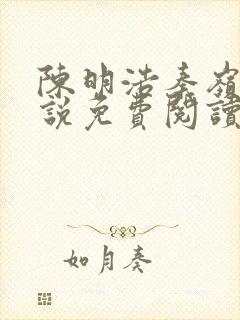 陳明浩秦嶺
說免費閱讀
如月奏